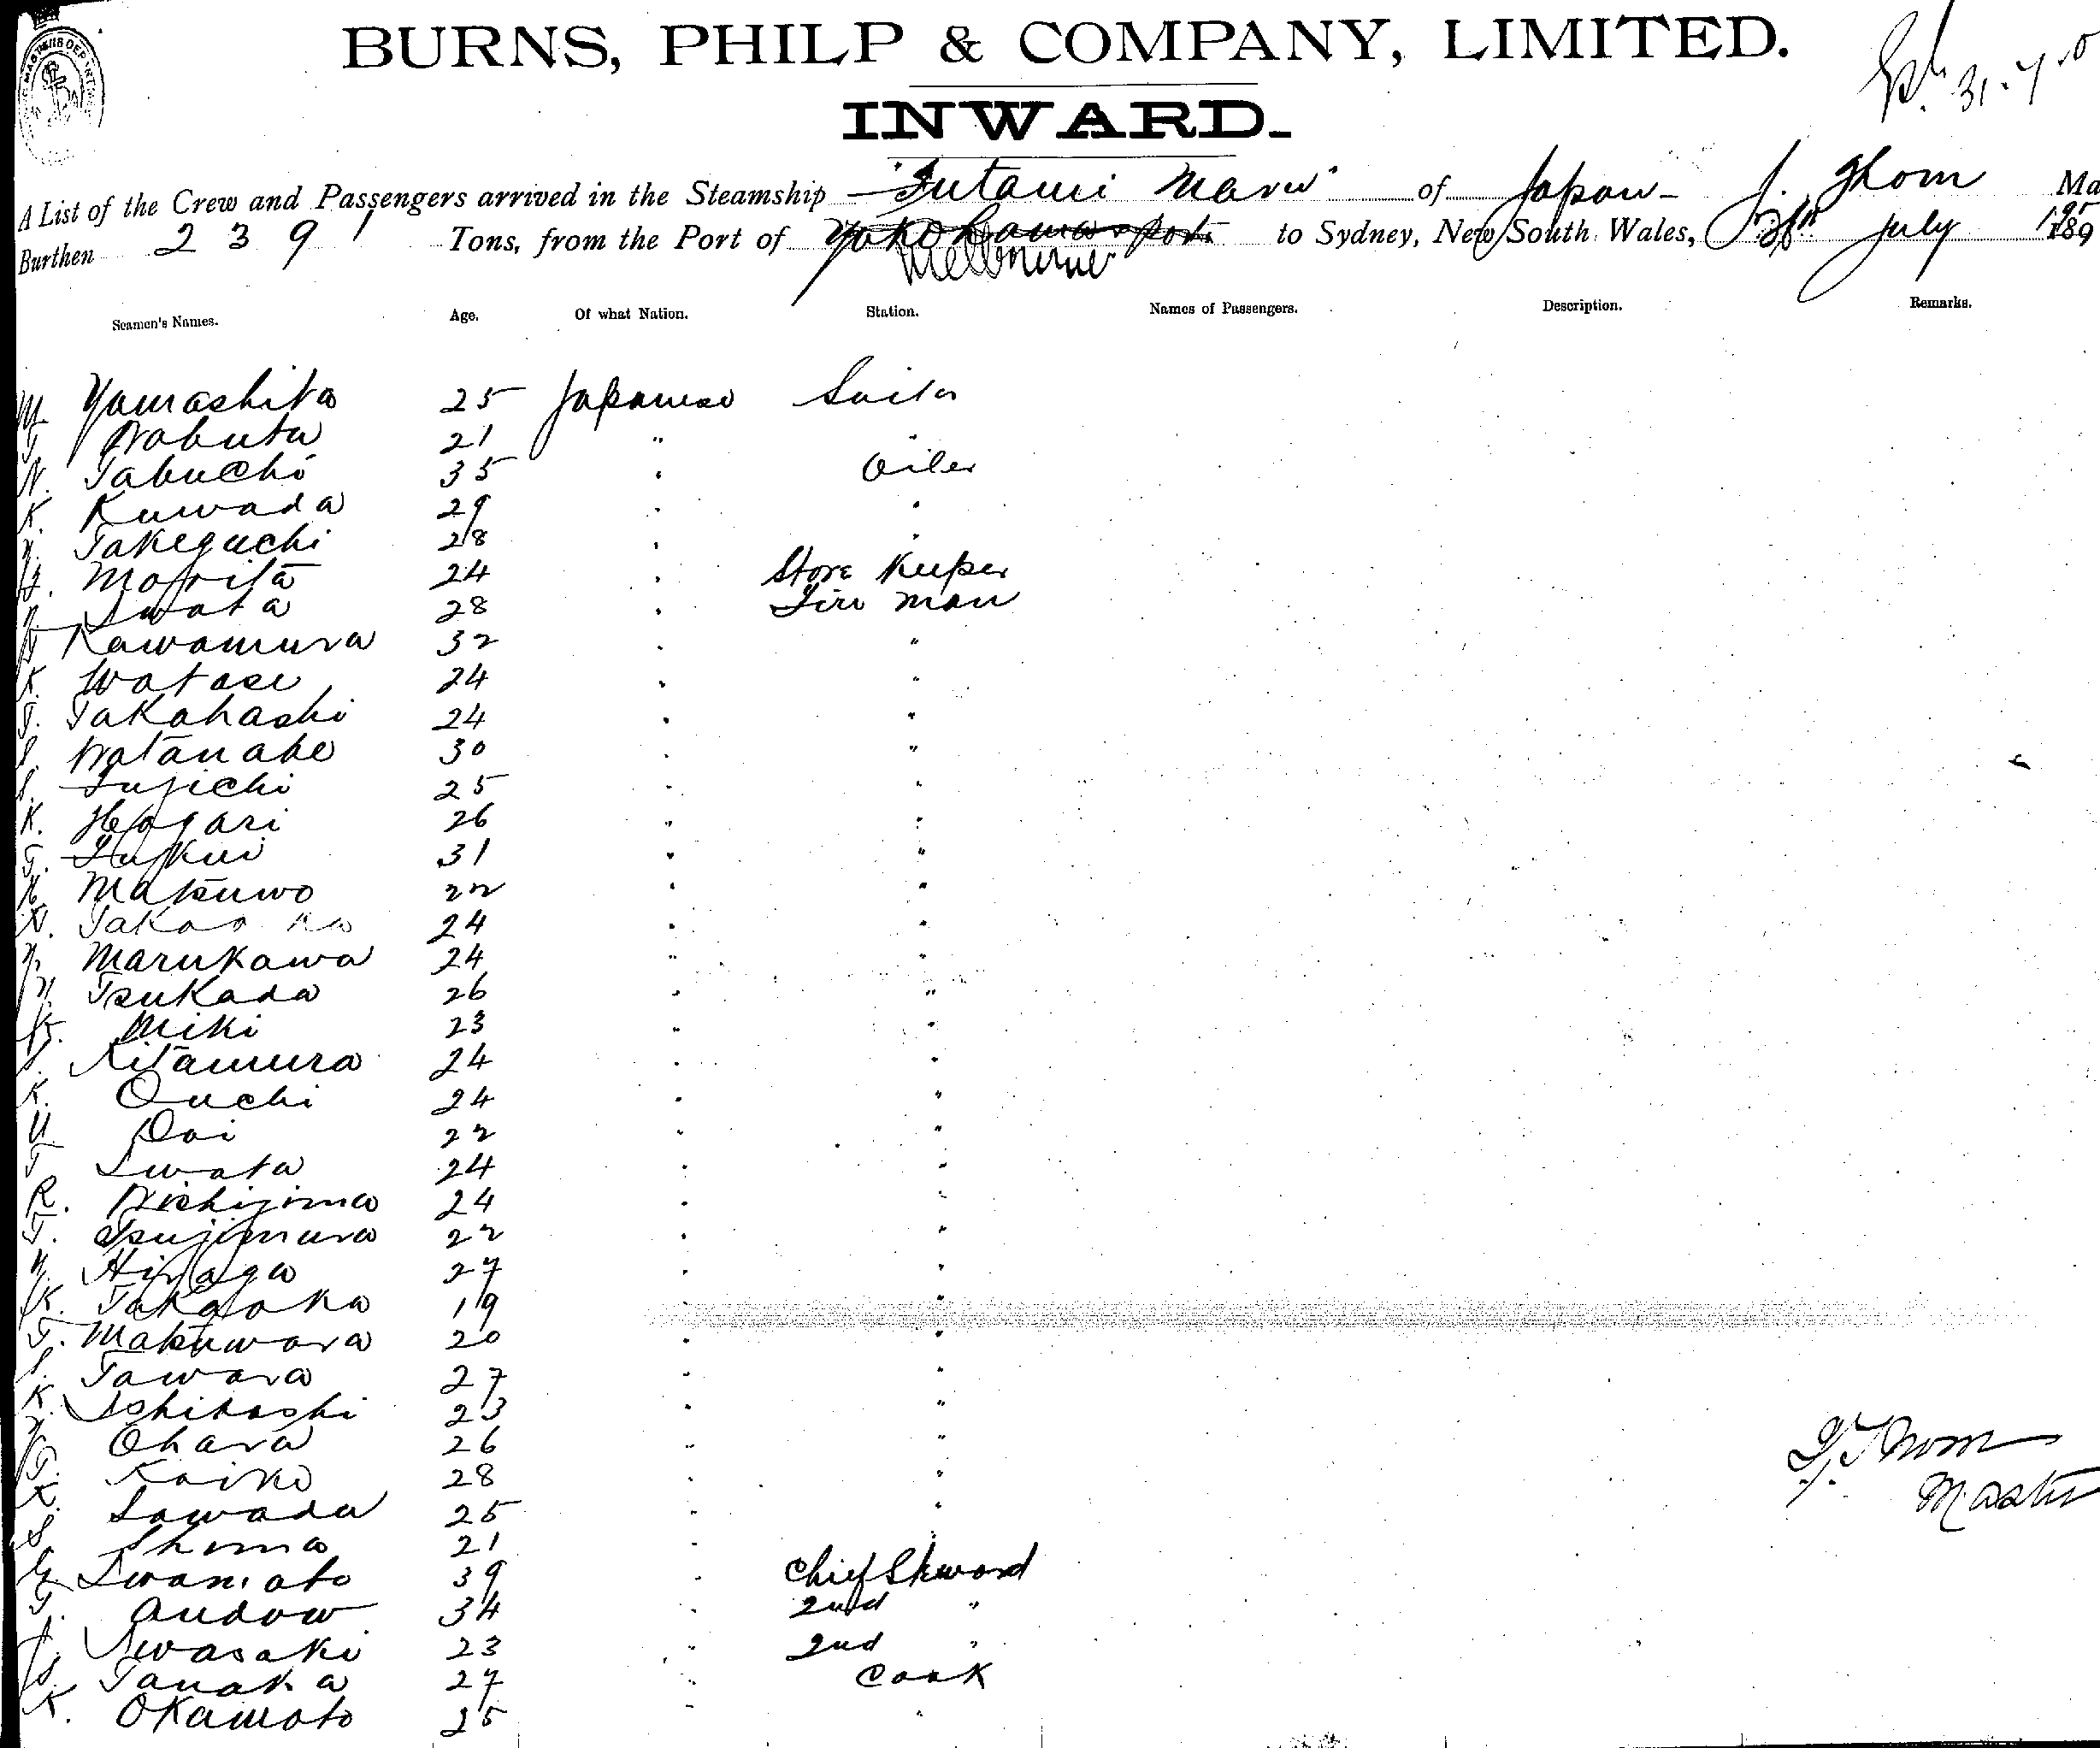 BURNS, PHILP & COMPANY, LIMITED.
INWARD.
31.7.0
A List of the Crew and Passengers arrived in the Steamship "Futami Maru" of Japan J. Thom Ma
Burthen 2391 Tons, from the Port of Yokohama Melbourne to Sydney, New South Wales, July 189
Seamen's Names. Age. Of what Nation. Station. Names of Passengers. Description. Remarks.
M. Yamashita 25 Japanese Sailor
T Nobuta 21 " "
N. Tabuchi 35 " Oiler
K. Kuwada 29 " "
Takeguchi 28 " "
Morita 24 " Store Keeper
Iwata 28 " Fire man
Kawamura 32 " "
K. Watase 24 " "
T. Takahashi 24 " "
S. Watanabe 30 " "
S. Fujichi 25 " "
K. Hogari 26 " "
T. Fukui 31 " "
Matsuwo 22 " "
N. Takaoka 24 " "
Marukawa 24 " "
Tsukada 26 " "
Miki 23 " "
Kitamura 24 " "
K. Ouchi 24 " "
U Doi 22 " "
T Iwata 24 " "
R. Nishijima 24 " "
T. Tsujimura 22 " "
Hiraga 27 " "
K. Takaoka 19 " "
T. Matsuwara 20 " "
S. Tawara 27 " "
K. Ishibashi 23 " "
Ohara 26 " "
T. Koike 28 " "
K. Sawada 25 " "
S Shima 21 " "
Iwamoto 39 " Chief Steward
T. Andow 34 " 2nd "
Iwasaki 23 " 2nd "
S. Tanaka 27 " Cook
K. Okamoto 25 " "
J. Thom
Master